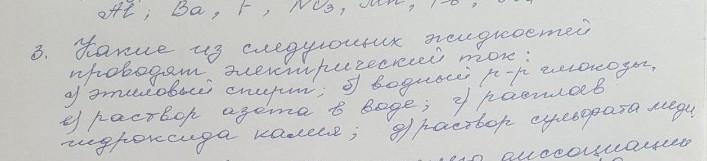 Al; Ba, F, NO3, Mn,
3. Какие из следующих жидкостей
проводят электрический ток:
а) этиловый спирт; б) водный р-р глюкозы,
в) раствор азота в воде; г) расплав
гидроксида калия; д) раствор сульфата меди
диссоциации